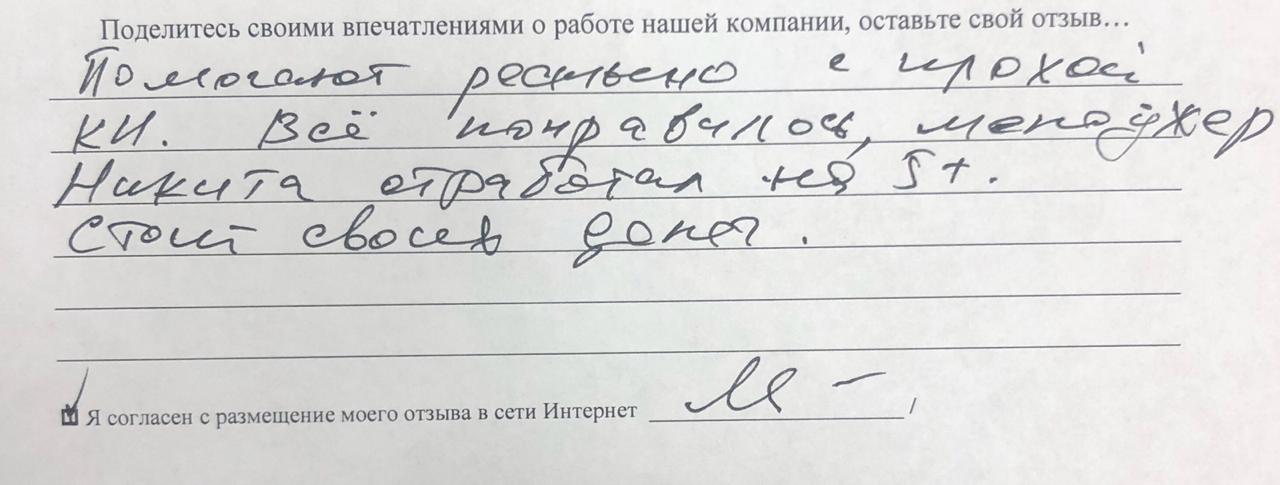 Поделитесь своими впечатлениями о работе нашей компании, оставьте свой отзыв…
Помогают реально с плохой
КИ. Всё понравилось, менеджер
Никита отработал на 5+.
Стоит своих денег.
Я согласен с размещение моего отзыва в сети Интернет /